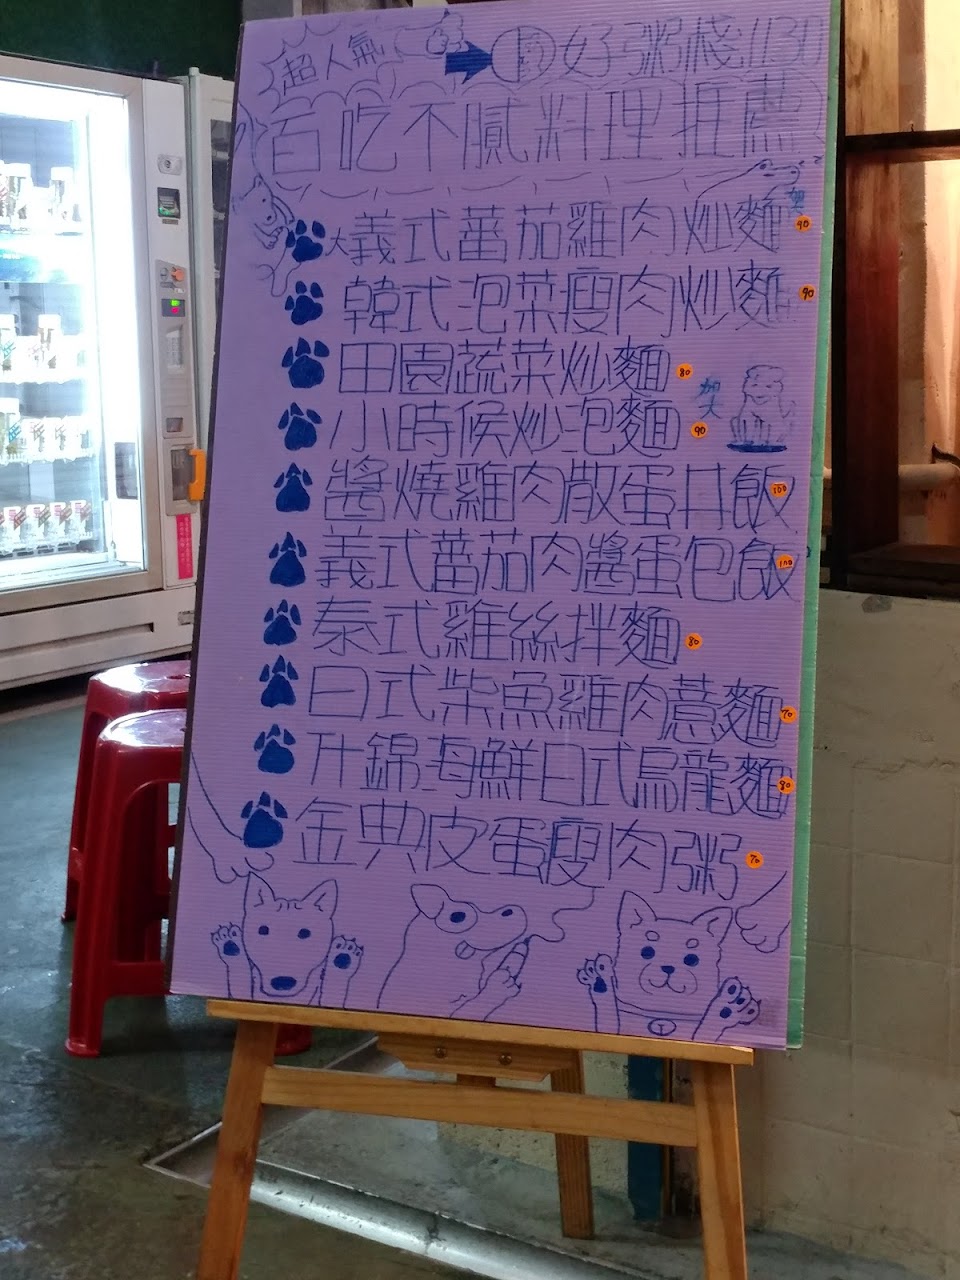 超人氣 好粥棧1131
百吃不膩料理推薦
大義式蕃茄雞肉炒麵 90
韓式泡菜瘦肉炒麵 90
田園蔬菜炒麵 80
加大
小時候炒泡麵 90
醬燒雞肉散蛋丼飯 100
義式蕃茄肉醬蛋包飯 100
泰式雞絲拌麵 80
日式柴魚雞肉薏麵 70
什錦海鮮日式烏龍麵 80
金典皮蛋瘦肉粥 70